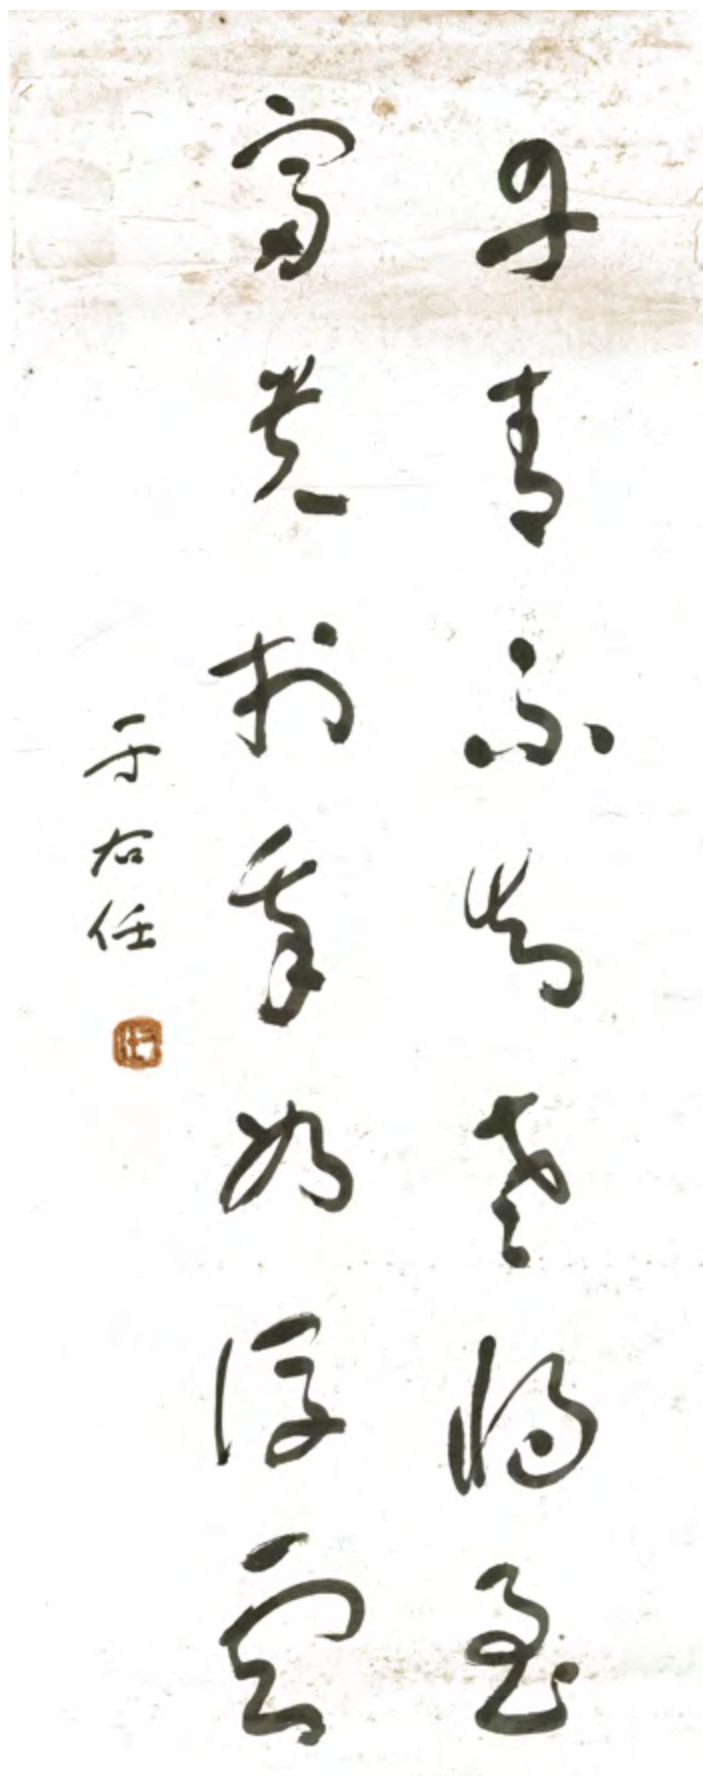 丹青不知老將至
富貴於我如浮雲
于右任